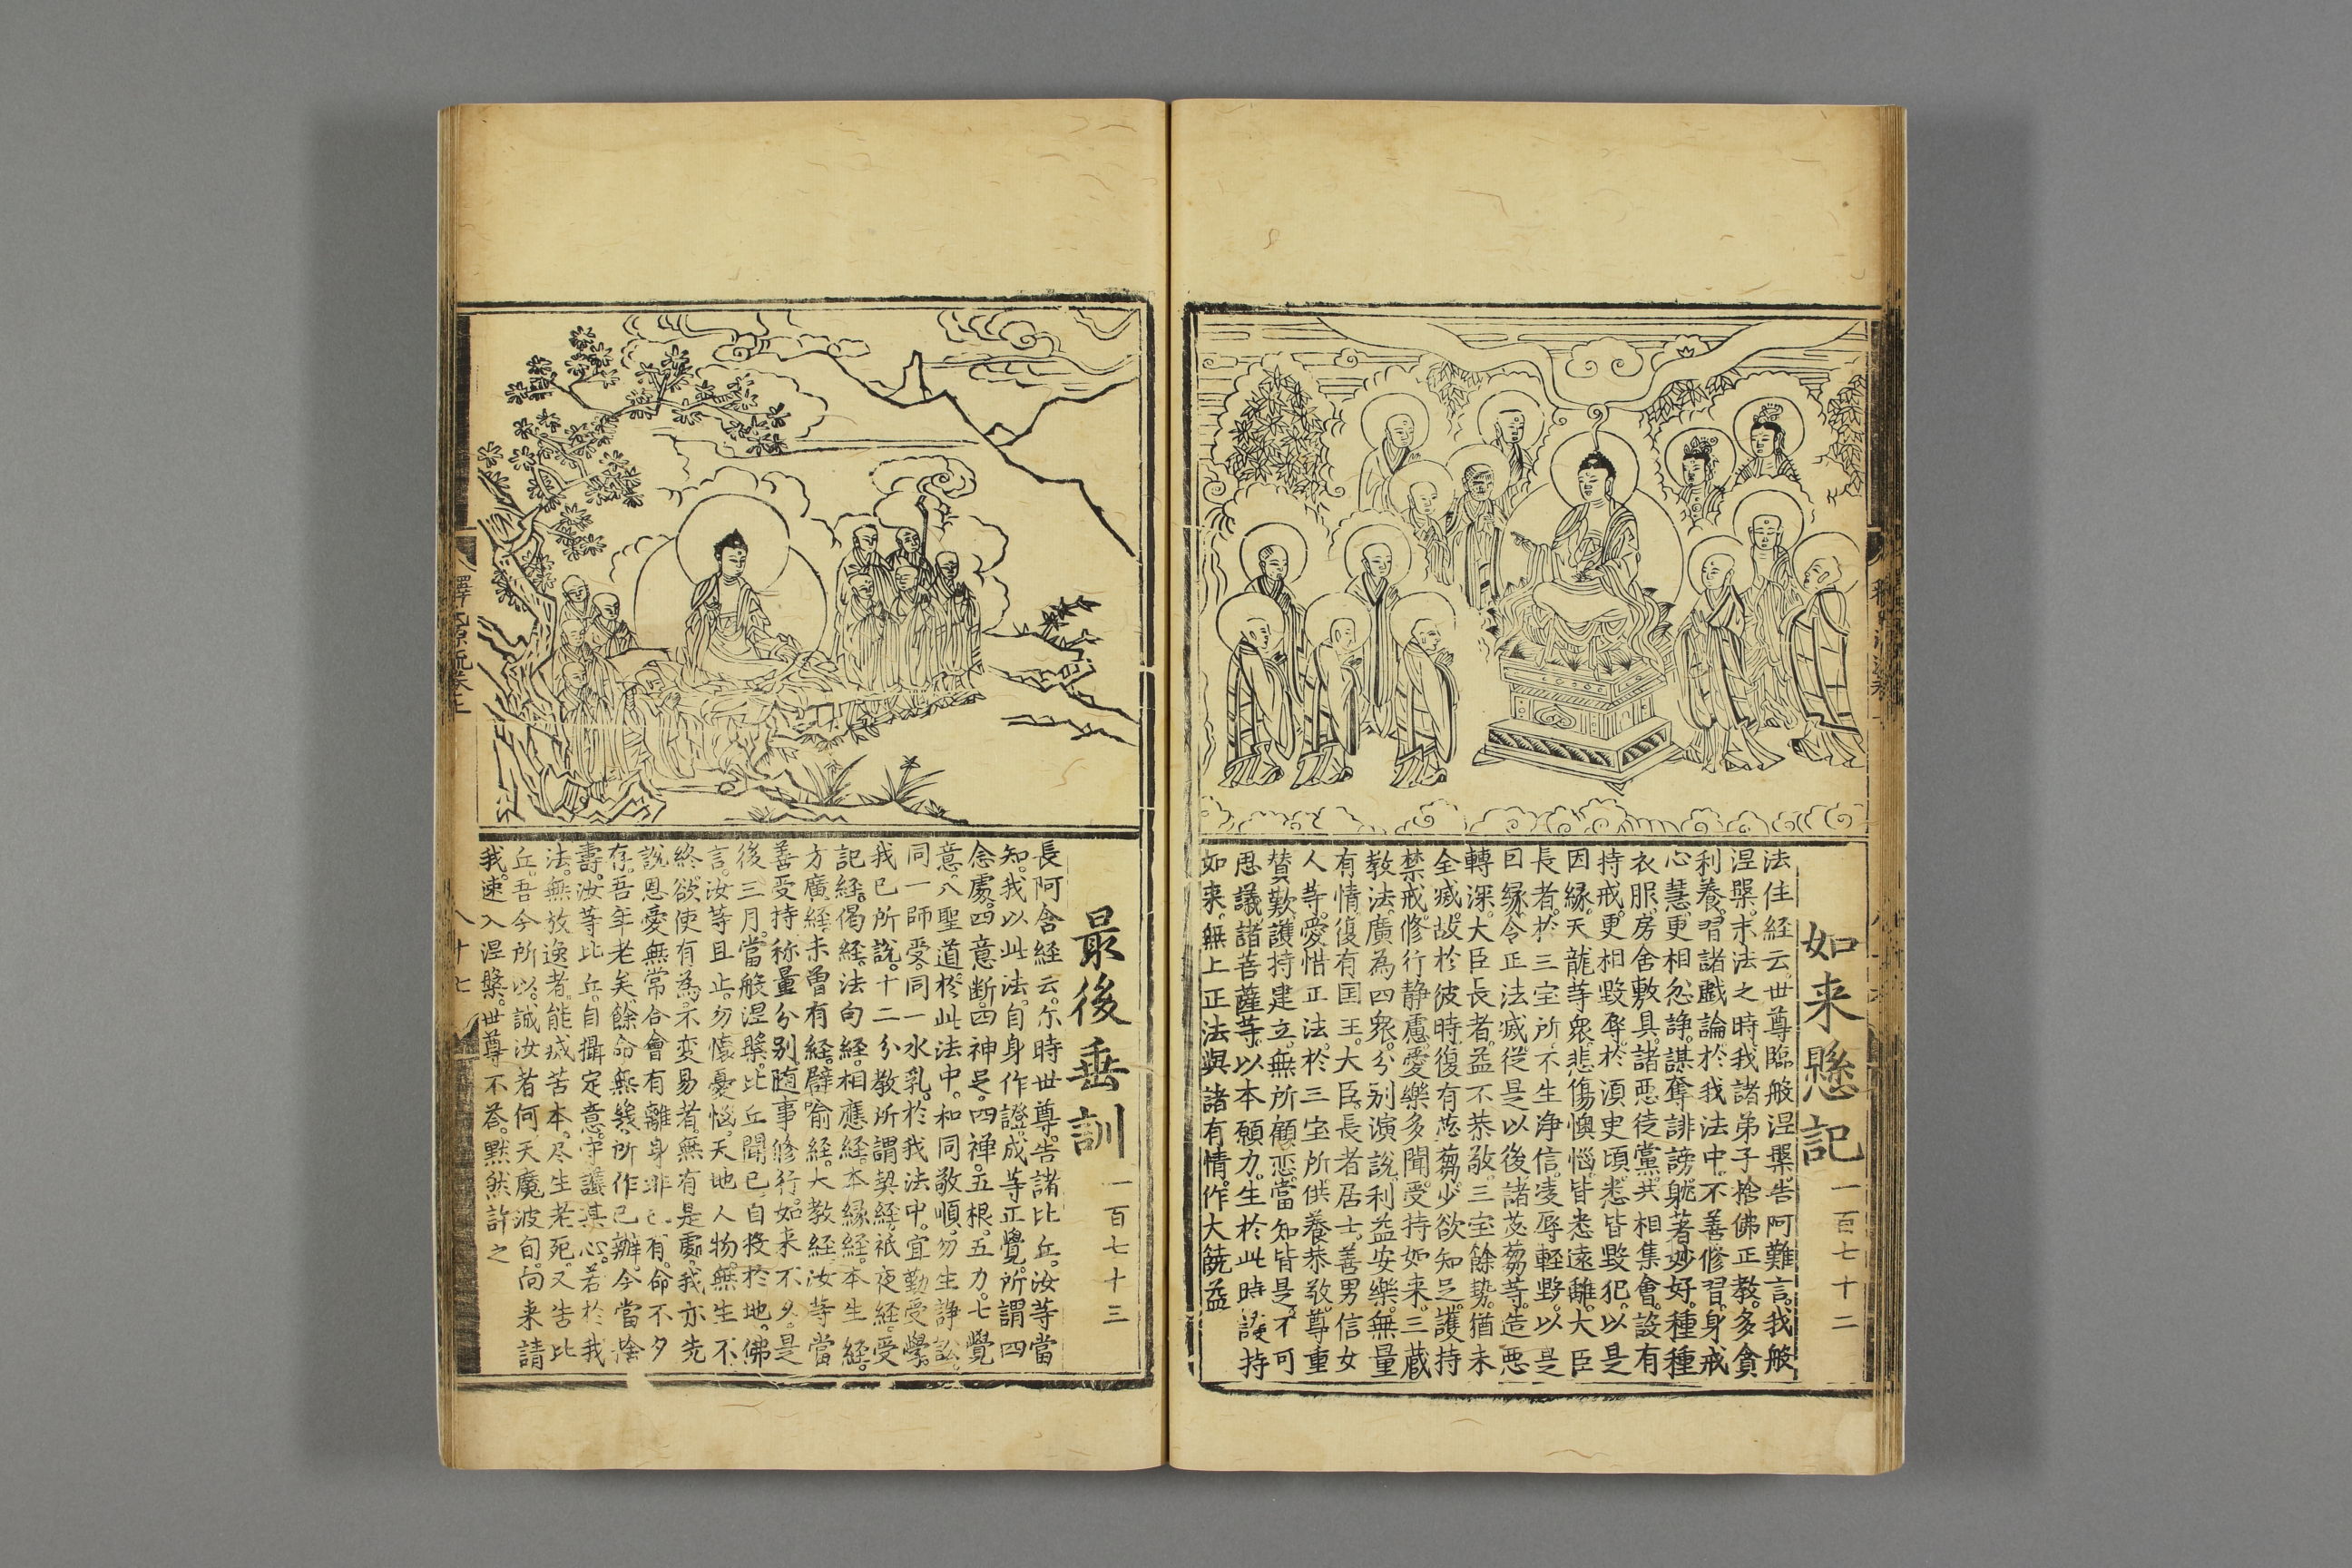 如来懸記 一百七十二
法住経云。世尊臨般涅槃。告阿難言。我般
涅槃。末法之時。我諸弟子。捨佛正教。多貪
利養。習諸戯論。於我法中。不善修習。身戒
心慧。更相忿諍。謀奪誹謗。躭著妙好。種種
衣服。房舍敷具。諸悪徒黨。共相集會。設有
持戒。更相毀辱。於湏史頃。悉皆毀犯。以是
因縁。天龍等衆。悲傷懊惱。皆悉遠離。大臣
長者。於三宝所。不生净信。凌辱輕毀。以是
曰縁。令正法滅。従是以後。諸苾蒭等。造悪
轉深。大臣長者。益不恭敬。三宝餘勢。猶未
全滅。故於彼時。復有苾蒭。少欲知足。護持
禁戒。修行静慮。愛樂多聞。受持如来。三蔵
教法。廣為四衆。分别演說。利益安樂。無量
有情。復有国王。大臣。長者。居士。善男信女
人等。愛惜正法。於三宝所。供養恭敬。尊重
賛歎。護持建立。無所顧恋。當知皆是。不可
思議。諸菩薩等。以本願力。生於此時。護持
如来。無上正法。與諸有情。作大饒益
最後垂訓 一百七十三
長阿含経云。尓時世尊。告諸比丘。汝等當
知。我以此法。自身作證。成等正覺。所謂四
念處。四意断。四神足。四禅。五根。五力。七覺
意。八聖道。於此法中。和同敬順。勿生諍訟。
同一師受。同一水乳。於我法中。宜勤受學。
我已所說。十二分教。所謂契経。衹夜経。受
記経。偈経。法句経。相應経。本縁経。本生経。
方廣経。未曾有経。譬喻経。大教経。汝等當
善受持。称量分别。随事修行。如来不久。是
後三月。當般涅槃。比丘聞已。自投於地。佛
言。汝等且止。勿懐憂惱。天地人物。無生不
終。欲使有為。不变易者。無有是處。我亦先
說恩愛無常。合會有離。身非己有。命不夕
存。吾年老矣。餘命無幾。所作已辦。今當捨
壽。汝等比丘。自攝定意。守護其心。若於我
法。無放逸者。能滅苦本。尽生老死。又告比
丘。吾今所以。誠汝者何。天魔波旬。向来請
我。速入涅槃。世尊不荅。黙然許之
八十七